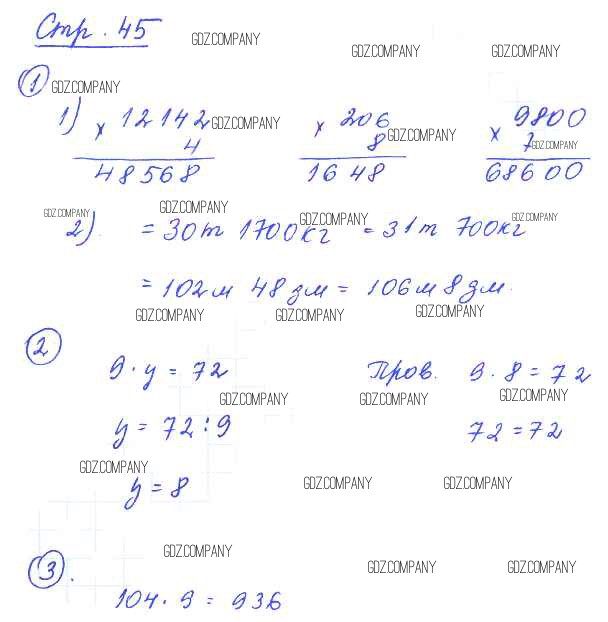 Стр. 45 GDZ.COMPANY GDZ.COMPANY GDZ.COMPANY
1 GDZ.COMPANY
1) × 12142 GDZ.COMPANY × 206 GDZ.COMPANY × 9800
4 8 7 GDZ.COMPANY
48568 1648 68600
GDZ.COMPANY GDZ.COMPANY GDZ.COMPANY GDZ.COMPANY
2). = 30т 1700кг = 31т 700кг
= 102м 48дм = 106м 8дм.
GDZ.COMPANY GDZ.COMPANY GDZ.COMPANY
2
9 · y = 72 Пров. 9 · 8 = 72
GDZ.COMPANY GDZ.COMPANY GDZ.COMPANY
y = 72 : 9 72 = 72
GDZ.COMPANY GDZ.COMPANY GDZ.COMPANY
y = 8
GDZ.COMPANY GDZ.COMPANY GDZ.COMPANY
3.
104 · 9 = 936